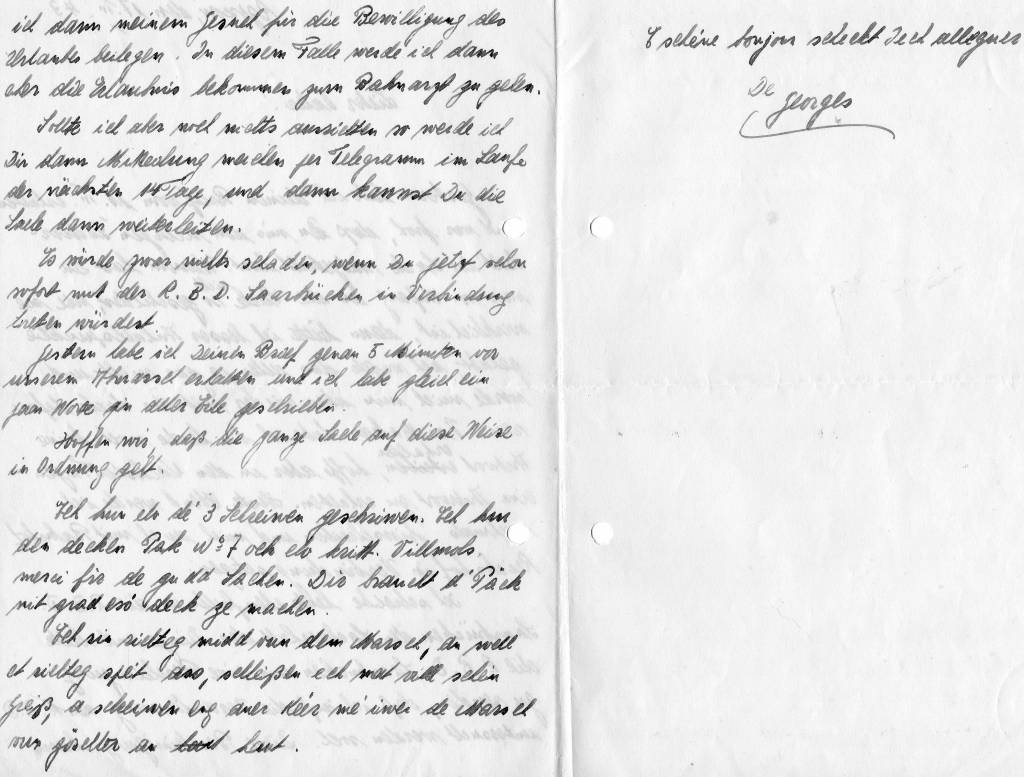 ich dann meinem Gesuch für die Bewilligung des
Urlaubes beilegen. In diesem Falle werde ich dann
aber die Erlaubnis bekommen zum Bahnarzt zu gehen.
Sollte ich aber noch nichts ausrichten so werde ich
Dir dann Mitteilung werden per Telegramm im Laufe
der nächsten 14 Tage, und dann kannst Du die
Sache dann weiterleiten.
Es würde zwar nichts schaden, wenn Du jetzt schon
sofort mit der R. B. D. Saarbrücken in Verbindung
treten würdest.
Gestern habe ich Deinen Brief genau 5 Minuten vor
unserem Abmarsch erhalten und ich habe gleich ein
paar Worte in aller Eile geschrieben.
Hoffen wir, daß die ganze Sache auf diese Weise
in Ordnung geht.
Ech hun elo dé 3 Scheinen geschriwen. Ech hun
den decken Pak No 7 och elo kritt. Villmols
merci fir de gudd Sachen. Dir braucht d'Päck
nit grad esó deck ze machen.
Ech sin richteg midd vun dem Marsch, an well
et richteg spét ass, schléßen ech mat vill schéin
Gréiß, a schreiwen eng aner Kéier mé iwer de Marsch
vun göschter an haut.
E schéne bonjour schéckt Iech alleguer
De Georges